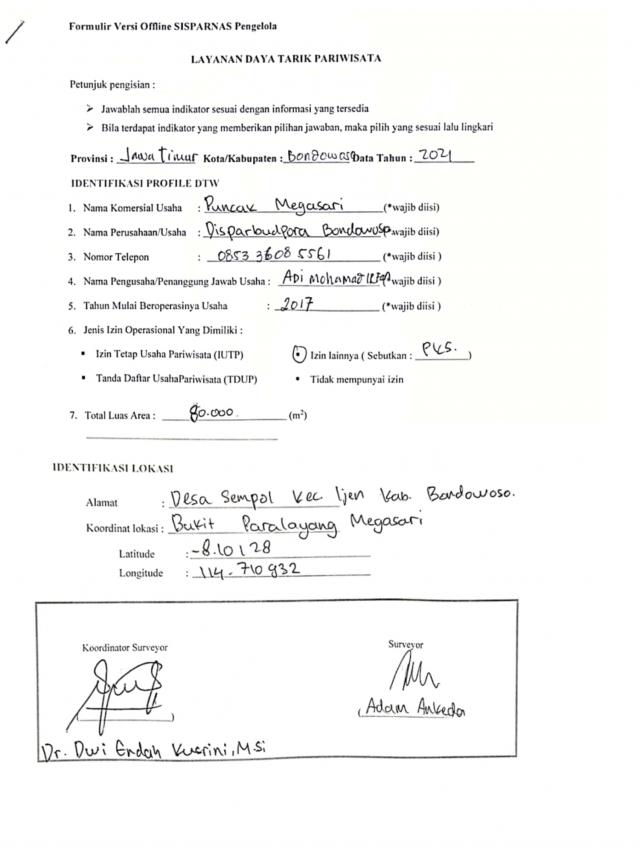 Formulir Versi Offline SISPARNAS Pengelola
LAYANAN DAYA TARIK PARIWISATA
Petunjuk pengisian :
➢ Jawablah semua indikator sesuai dengan informasi yang tersedia
➢ Bila terdapat indikator yang memberikan pilihan jawaban, maka pilih yang sesuai lalu lingkari
Provinsi : Jawa Timur Kota/Kabupaten : Bondowoso Data Tahun : 2021
IDENTIFIKASI PROFILE DTW
1. Nama Komersial Usaha : Puncak Megasari (*wajib diisi)
2. Nama Perusahaan/Usaha : Disparbudpora Bondowoso wajib diisi)
3. Nomor Telepon : 0853 3608 5561 (*wajib diisi )
4. Nama Pengusaha/Penanggung Jawab Usaha : Adi Mohamad wajib diisi )
5. Tahun Mulai Beroperasinya Usaha : 2017 (*wajib diisi )
6. Jenis Izin Operasional Yang Dimiliki :
▪ Izin Tetap Usaha Pariwisata (IUTP) ▪ Izin lainnya ( Sebutkan : PKS. )
▪ Tanda Daftar UsahaPariwisata (TDUP) ▪ Tidak mempunyai izin
7. Total Luas Area : 80.000 (m²)
IDENTIFIKASI LOKASI
Alamat : Desa Sempol Kec Ijen Kab. Bondowoso.
Koordinat lokasi : Bukit Paralayang Megasari
Latitude : -8.10128
Longitude : 114.710932
Koordinator Surveyor Surveyor
( Adam Ankeda
)
Dr. Dwi Endah Kusrini, M.Si